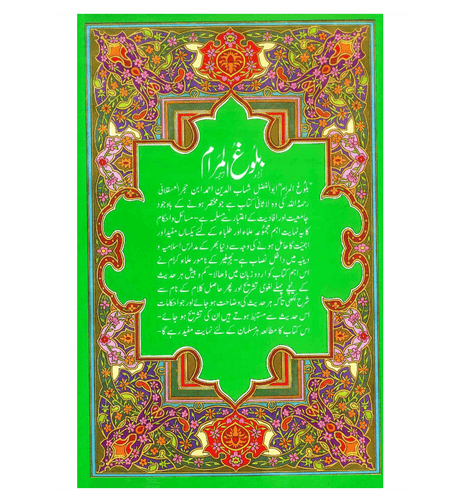 بلوغ المرام
"بلوغ المرام" ابوالفضل شہاب الدین احمد ابن حجر العسقلانی
رحمۃ اللہ کی وہ لاثانی کتاب ہے جو مختصر ہونے کے باوجود
جامعیت اور افادیت کے اعتبار سے مسلمہ ہے۔ مسائل و احکام
کا یہ نہایت اہم مجموعہ علماء اور طلباء کے لئے یکساں مفید اور
اہمیت کا حامل ہونے کی وجہ سے دنیا بھر کے مدارس اسلامیہ و
دینیہ میں داخل نصاب ہے۔ کے نامور علماء کرام نے
اس اہم کتاب کو اردو زبان میں ڈھالا۔ کم و بیش ہر حدیث
کے نیچے پہلے لغوی تشریح اور پھر حاصل کلام کے نام سے
شرح لکھی تاکہ ہر حدیث کی وضاحت ہو جائے اور جو احکامات
اس حدیث سے مستنبط ہوتے ہیں ان کی تشریح ہو جائے۔
اس کتاب کا مطالعہ ہر مسلمان کے لئے نہایت مفید رہے گا۔